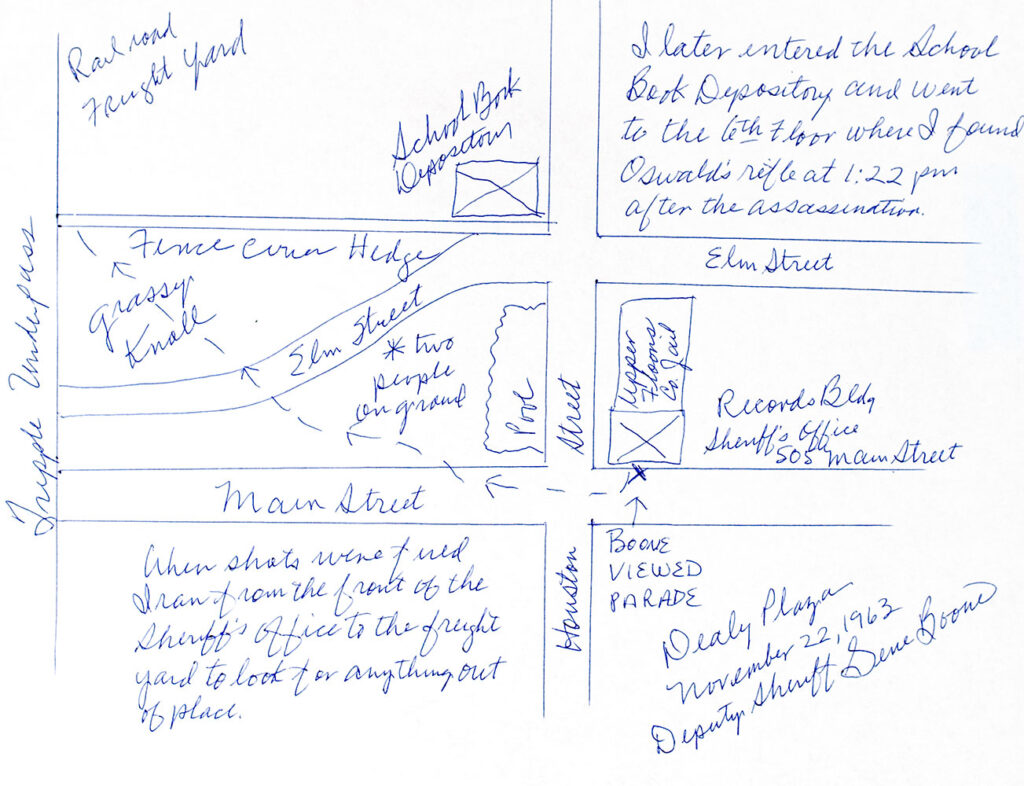 Railroad
Freight Yard
School Book
Depository
I later entered the School
Book Depository and went
to the 6th Floor where I found
Oswald's rifle at 1:22 pm
after the assassination.
Fence cover Hedge
Elm Street
Grassy
Knoll
Elm Street
* two
people
on ground
Pool
Street
Upper
Floors
Co. Jail
Records Bldg
Sheriff's Office
505 Main Street
Tripple Underpass
Main Street
When shots were fired
I ran from the front of the
Sheriff's Office to the freight
yard to look for anything out
of place.
Houston
BOONE
VIEWED
PARADE
Dealy Plaza
November 22, 1963
Deputy Sheriff Gene Boone